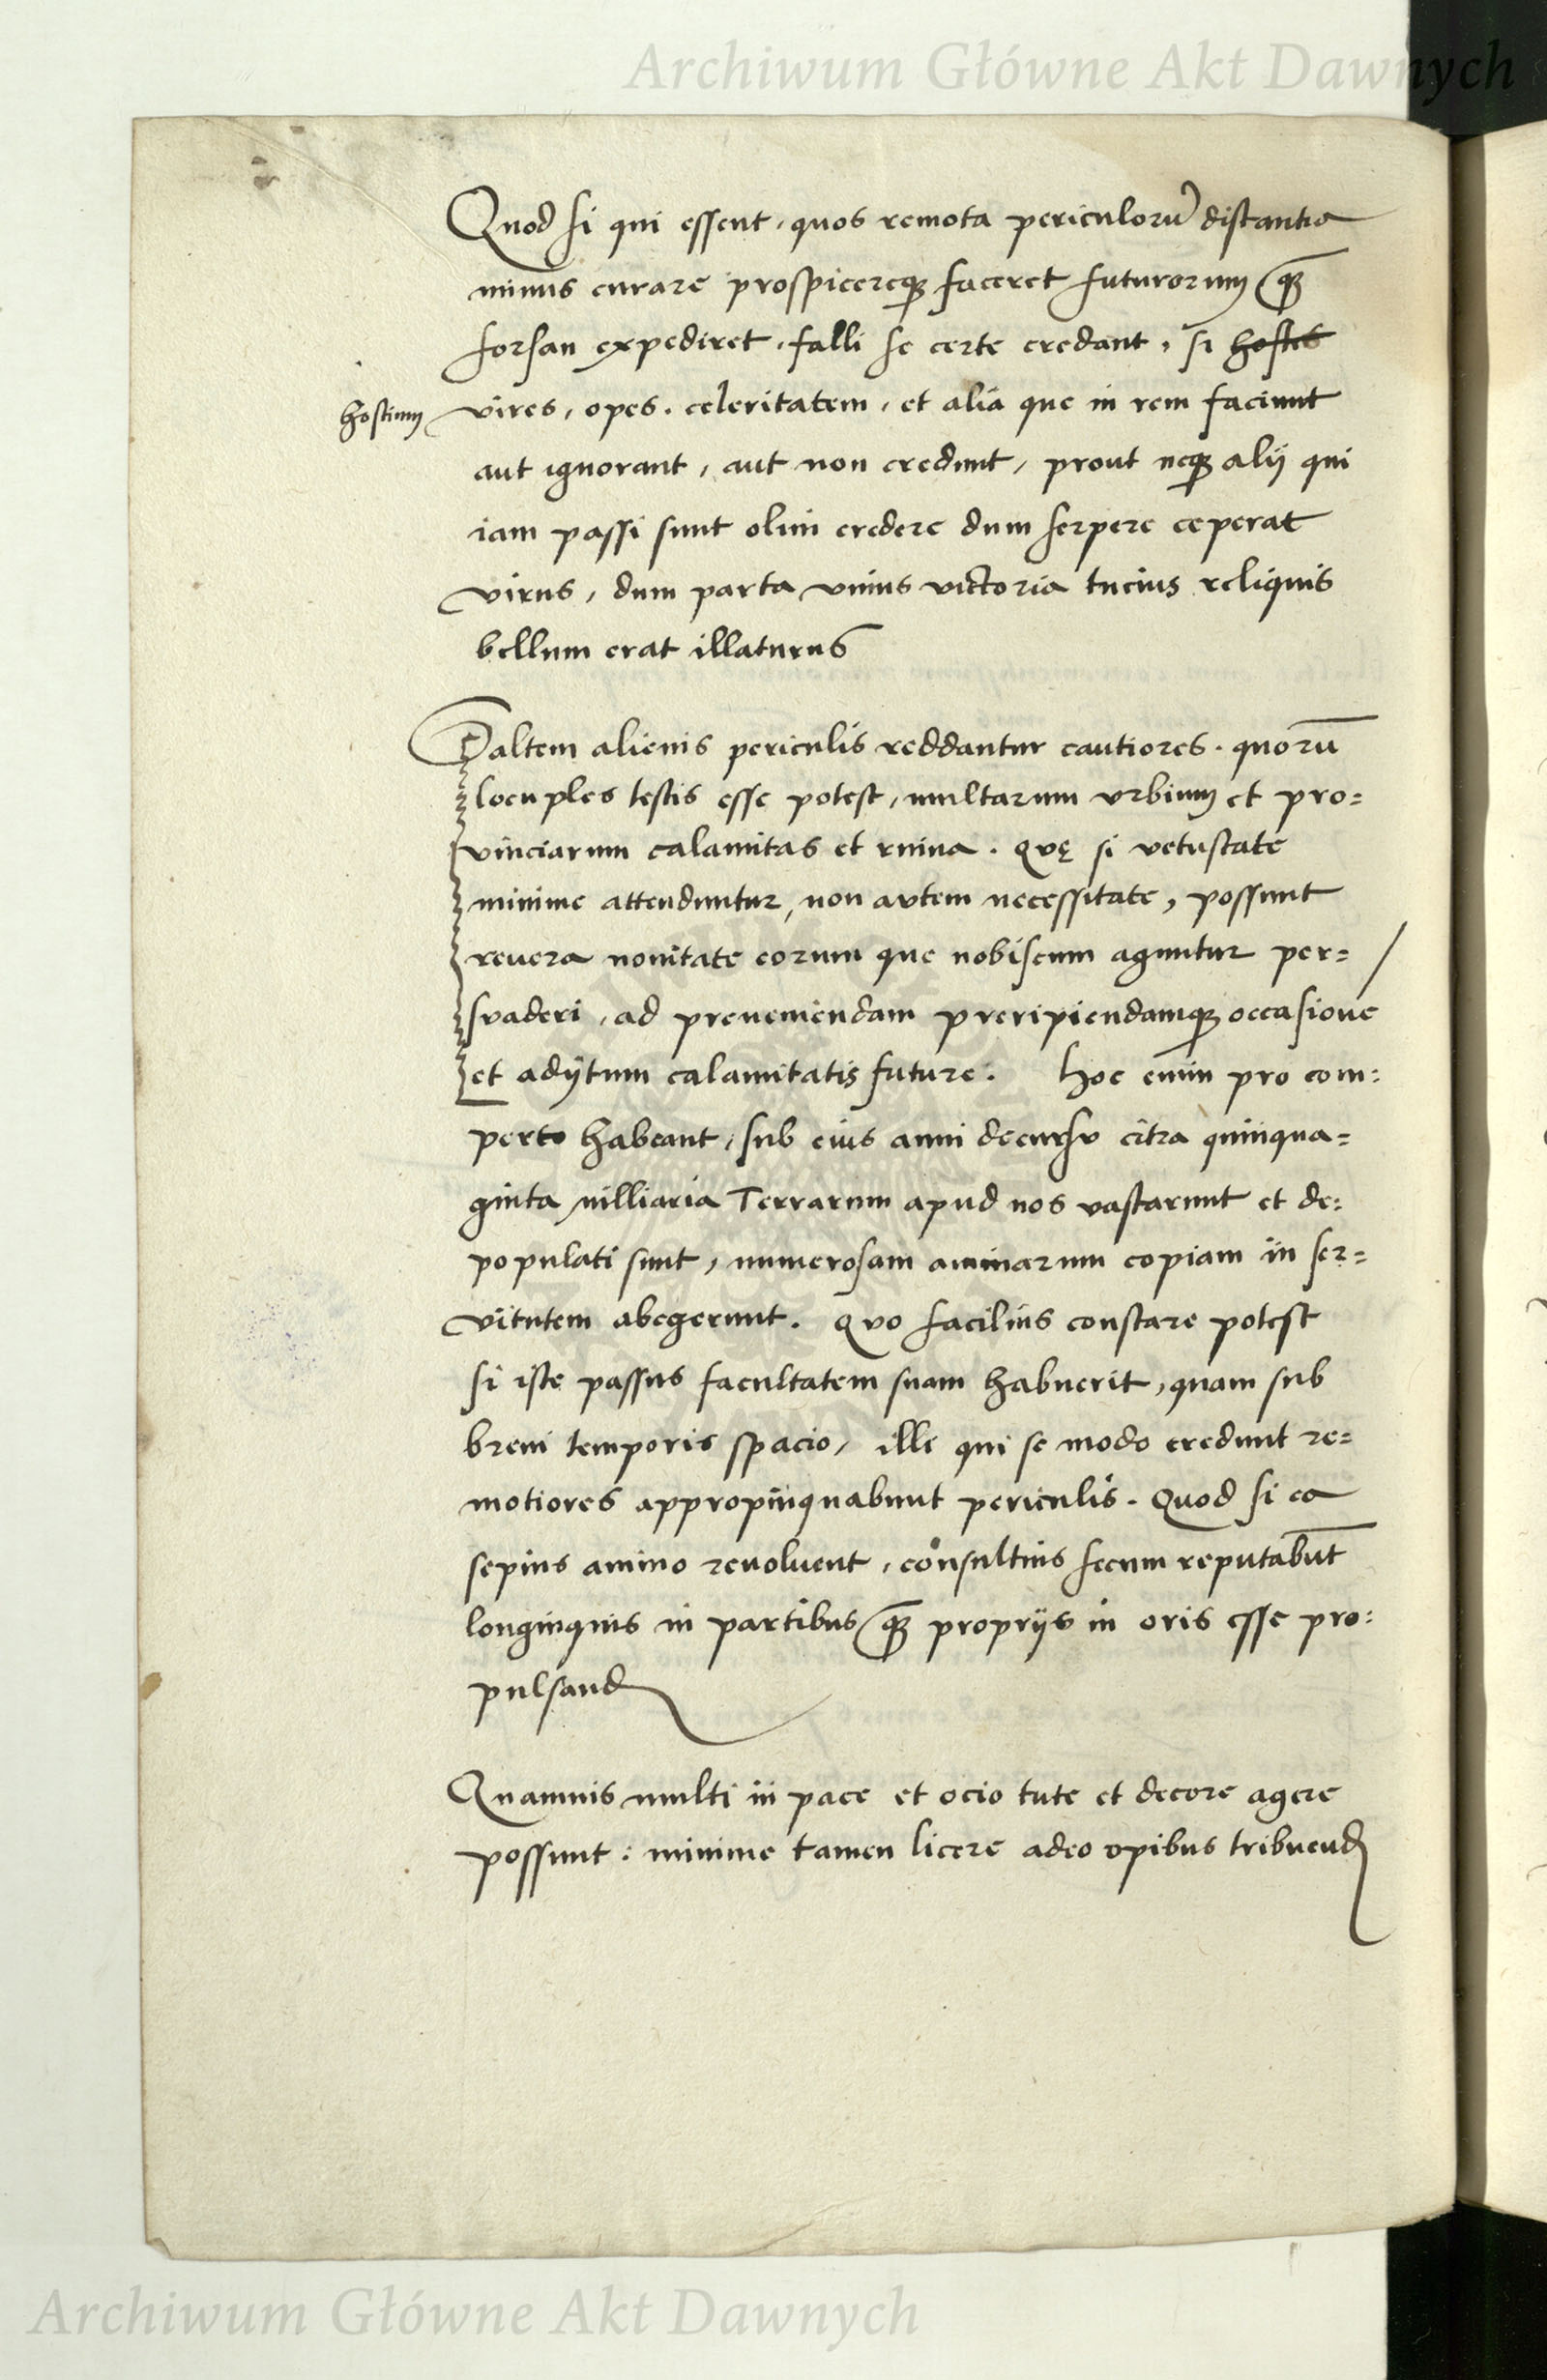 Archiwum Główne Akt Dawnych
Quod si qui essent, quos remota periculorū distantia
minus curare prospicereqȝ faceret futurorum qȝ
forsan expediret, falli se certe credant, si hostes
hostium
vires, opes, celeritatem, et alia que in rem faciunt
aut ignorant, aut non credunt, prout neqȝ alij qui
iam passi sunt olim credere dum serpere ceperat
virus, dum parta unius victoria tucius reliquis
bellum erat illaturus
Saltem alienis periculis reddantur cautiores. quorū
locuples testis esse potest, multarum vrbium et pro=
vinciarum calamitas et ruina. Quę si vetustate
minime attenduntur, non avtem necessitate, possunt
reuera nouitate eorum que nobiscum aguntur per=
svaderi, ad preueniendam preripiendamqȝ occasione
et adijtum calamitatis future. Hoc enim pro com=
perto habeant, sub eius anni decursv citra quinqua=
ginta milliaria Terrarum apud nos vastarunt et de=
populati sunt, numerosam animarum copiam in ser=
vitutem abegerunt. Qvo facilius constare potest
si iste passus facultatem suam habuerit, quam sub
breui temporis spacio, illi qui se modo credunt re=
motiores appropinquabunt periculis. Quod si ea
sepius animo reuoluent, consultius secum reputabūt
longinquis in partibus qȝ proprijs in oris esse pro=
pulsand
Quamuis multi in pace et ocio tute et decore agere
possunt: minime tamen licere adeo opibus tribuend
Archiwum Główne Akt Dawnych